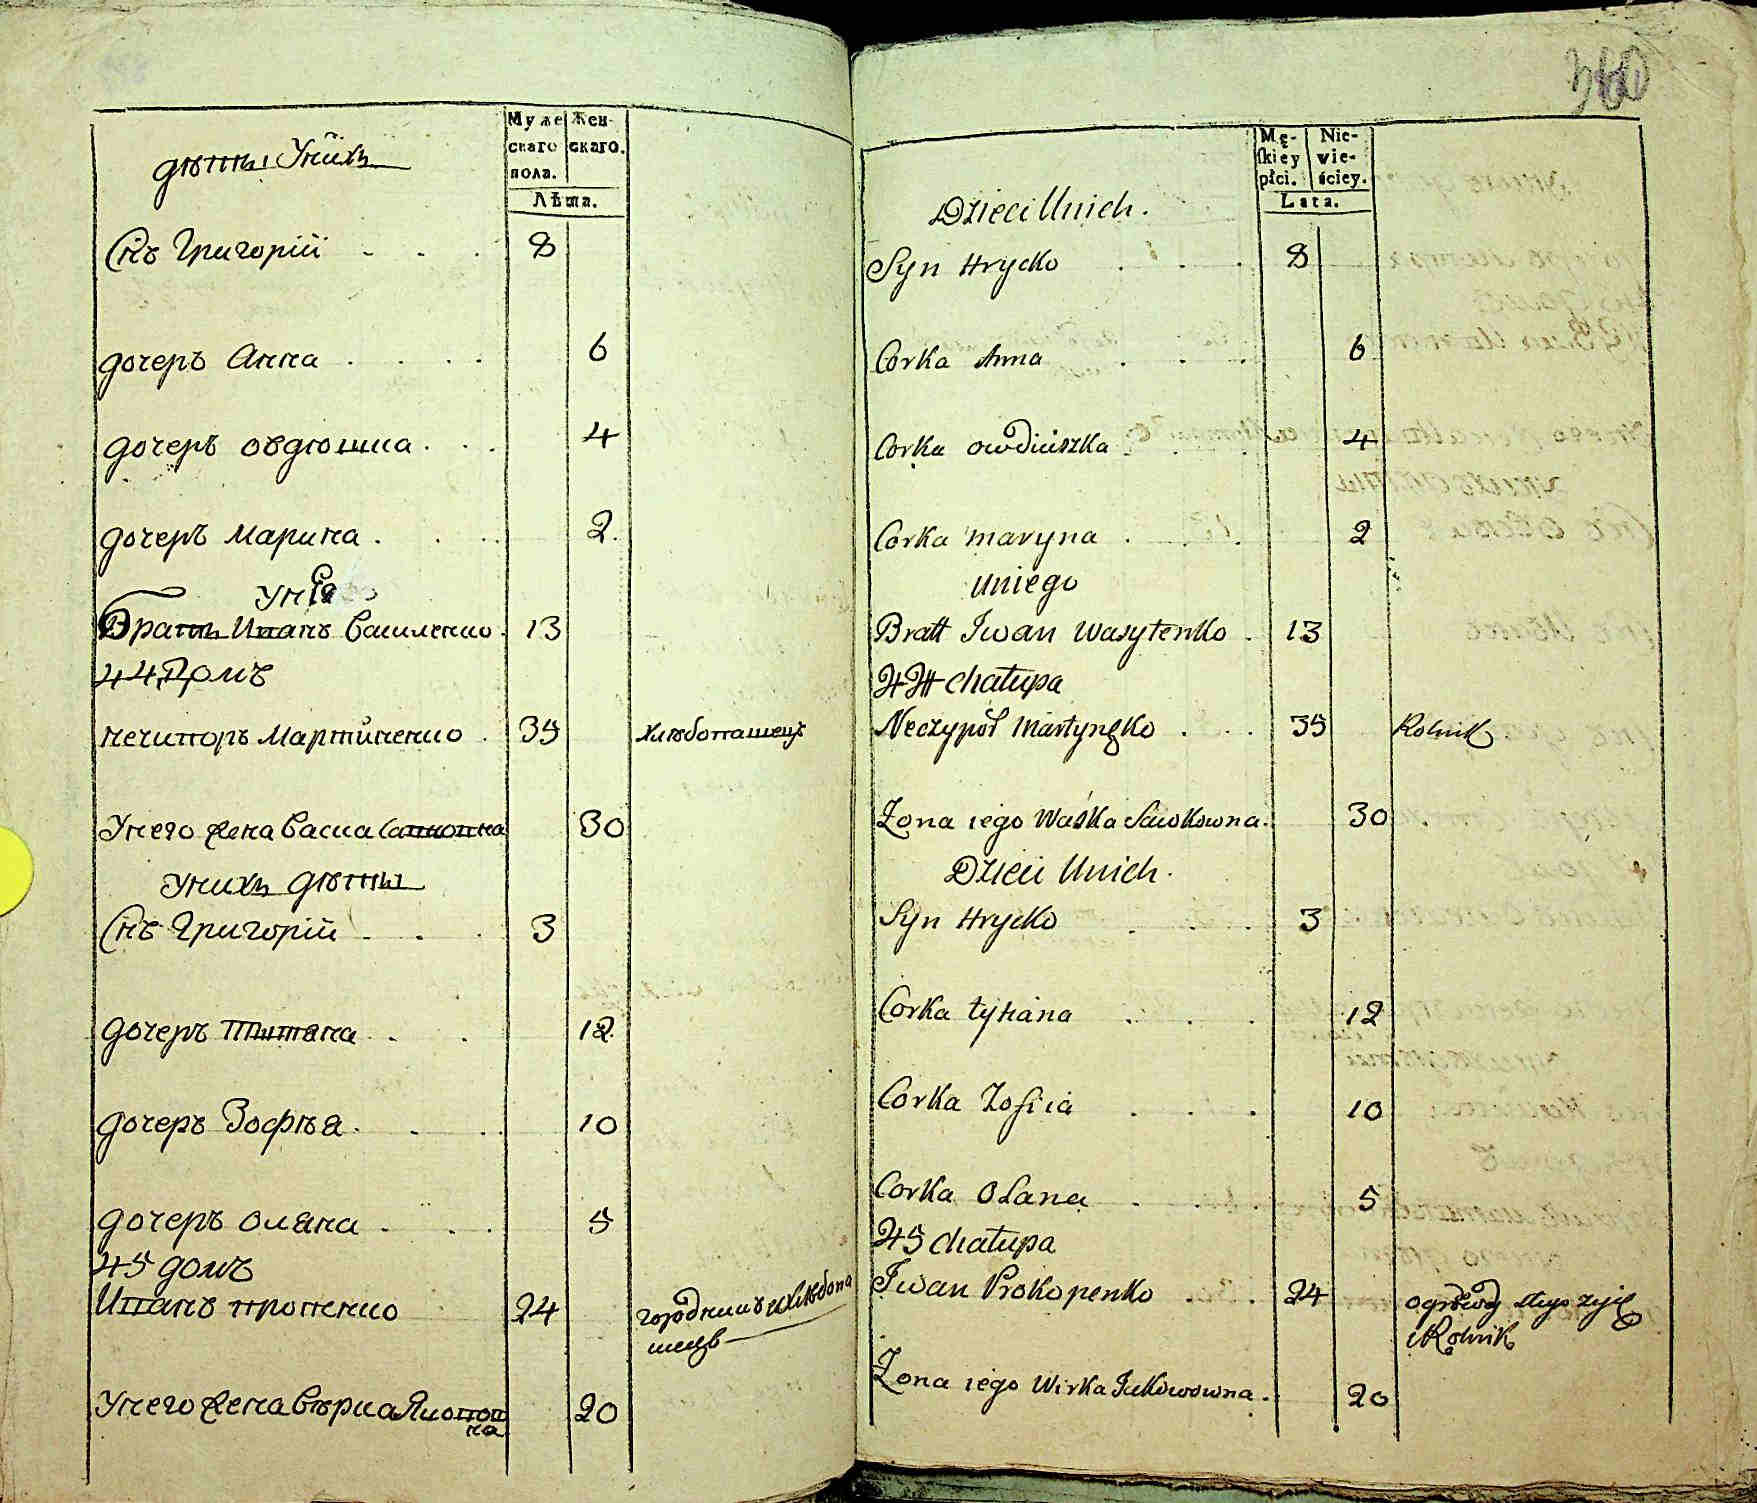 Муже
скаго
пола.
Жен-
скаго.
Лѣта.
дѣти Унихъ
Снъ Григорій 8
дочеръ Анна 6
дочеръ овдюшка 4
дочеръ Марина 2.
Унего
Братъ Иванъ Василенко 13
44 домъ
нечипоръ Мартиненко 35 хлѣбопашецъ
Унего жена Васка Савковна 30
Унихъ дѣти
Снъ Григорій 3
дочеръ Титяна 12
дочеръ Зофѣя 10
дочеръ оляна 5
45 домъ
Иванъ
24 городникъ и хлѣбопа
шецъ
Унего жена Вѣрка Яковов
на 20
360
Mę-
skiey
płci.
Nie-
wie-
ściey.
Lata.
Dzieci Unich.
Syn Hrycko 8
Corka Anna 6
Corka owdiuszka 4
Corka Maryna 2
uniego
Bratt Iwan Wasylenko 13
44 chałupa
Neczypor Martynęko 35 Rolnik
Zona iego Waska Sawkowna 30
Dzieci Unich.
Syn Hrycko 3
Corka tytiana 12
Corka Zofiia 10
Corka Olana 5
45 chałupa
Iwan Prokopenko 24
iRolnik
Zona iego Wirka Jakowowna 20